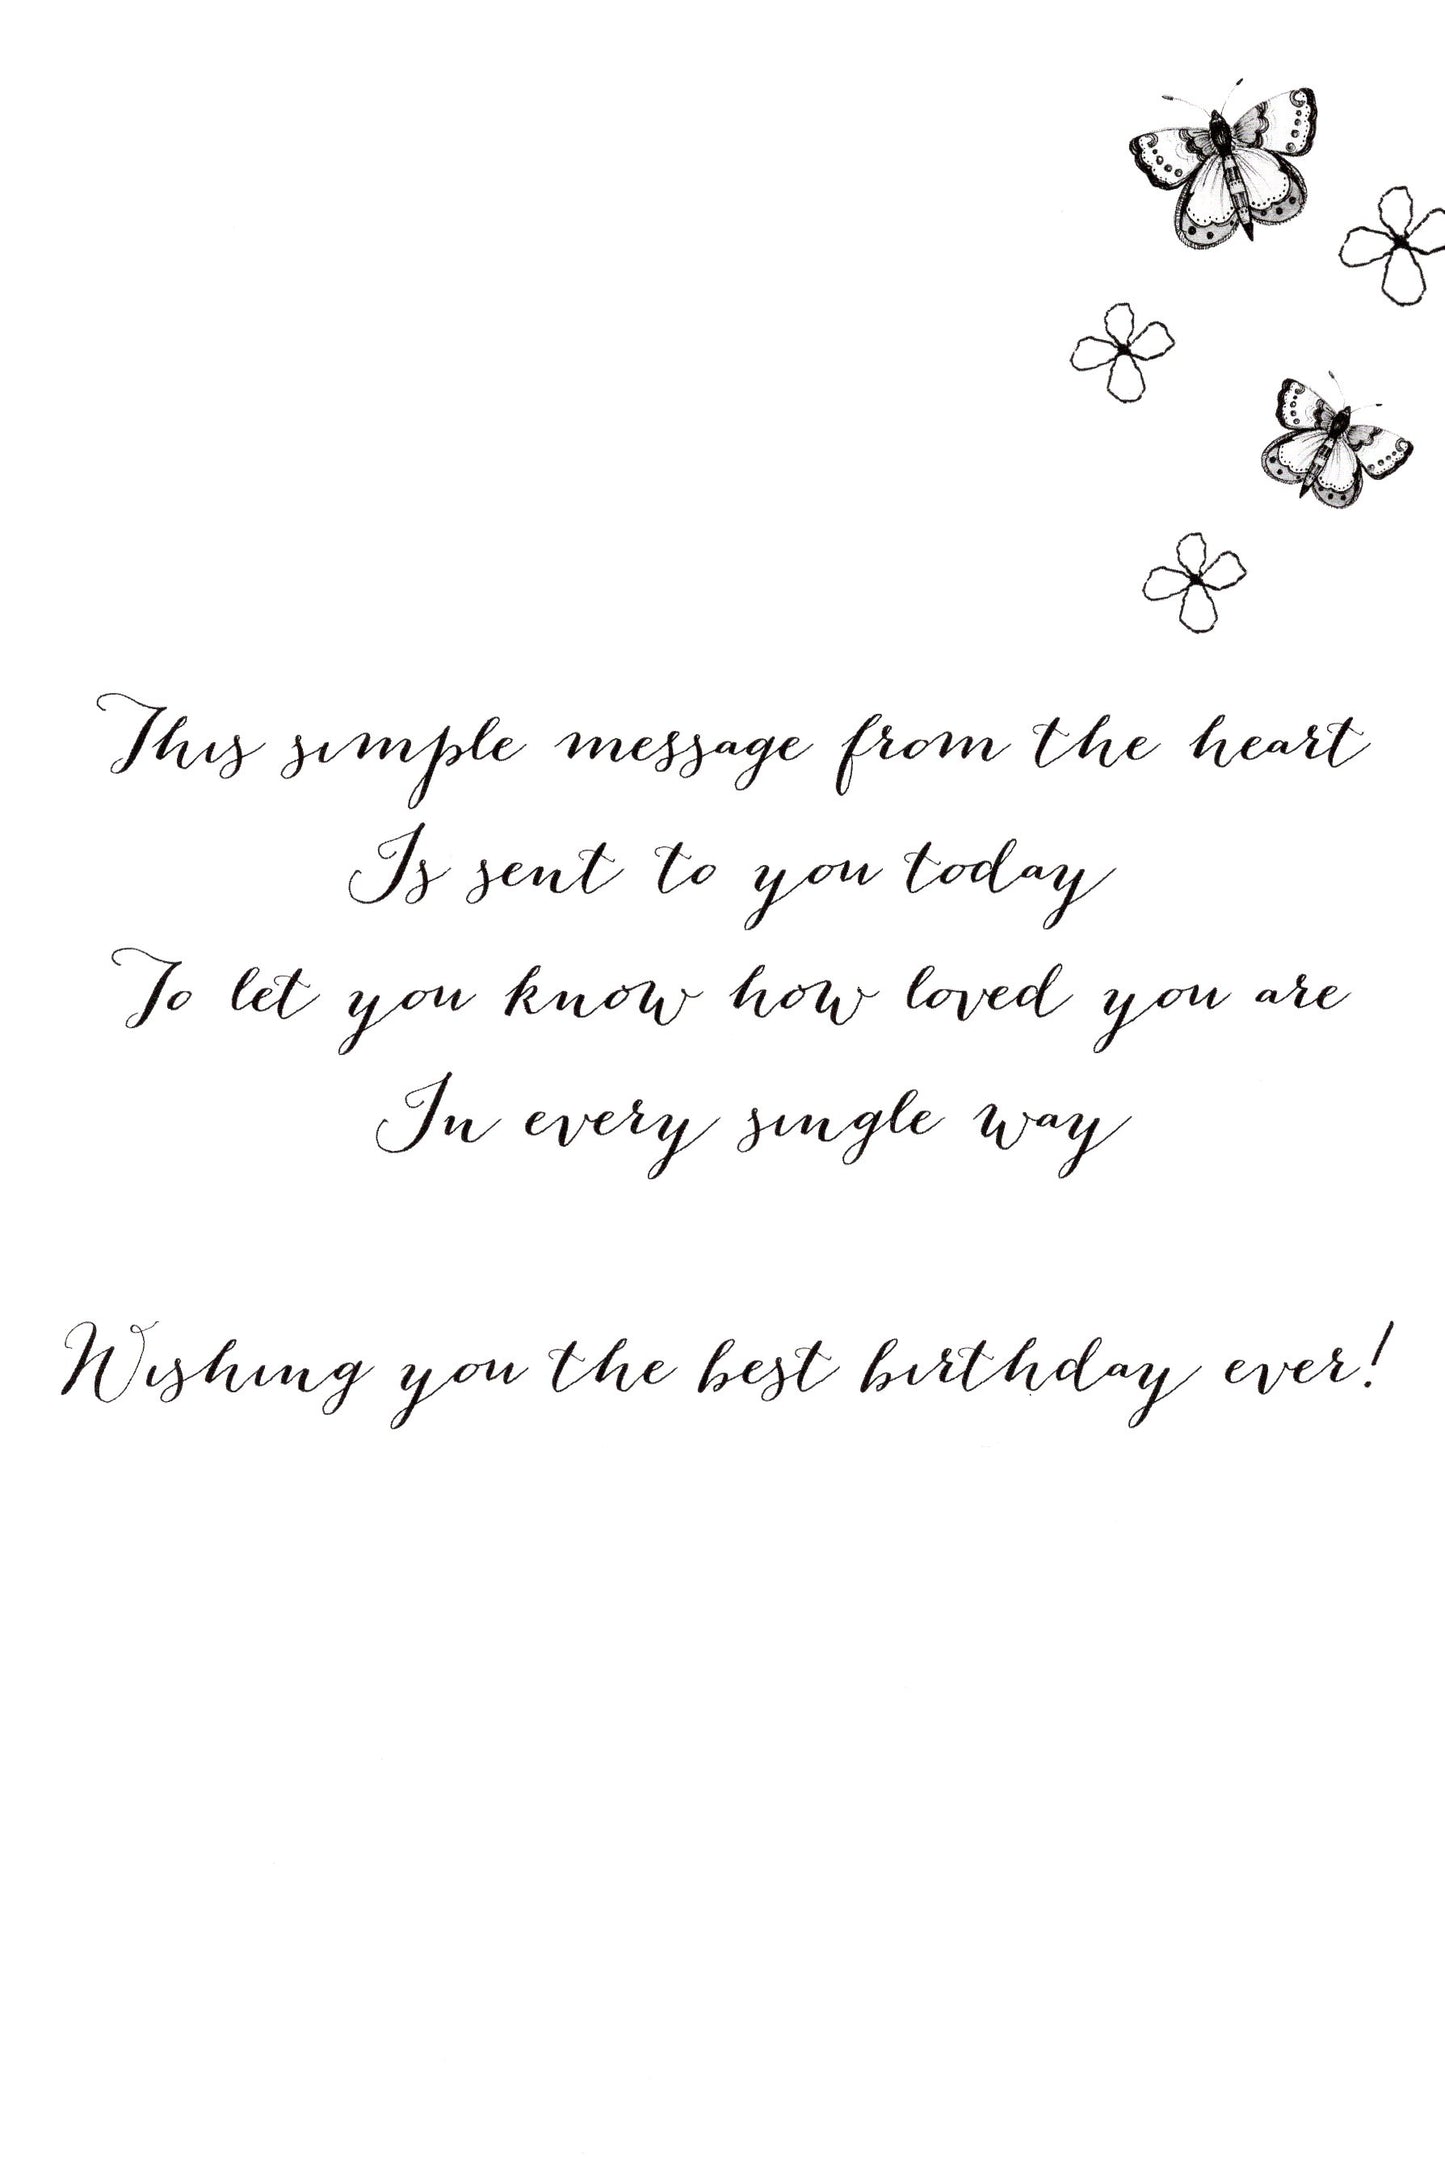 This simple message from the heart
Is sent to you today
To let you know how loved you are
In every single way
Wishing you the best birthday ever!